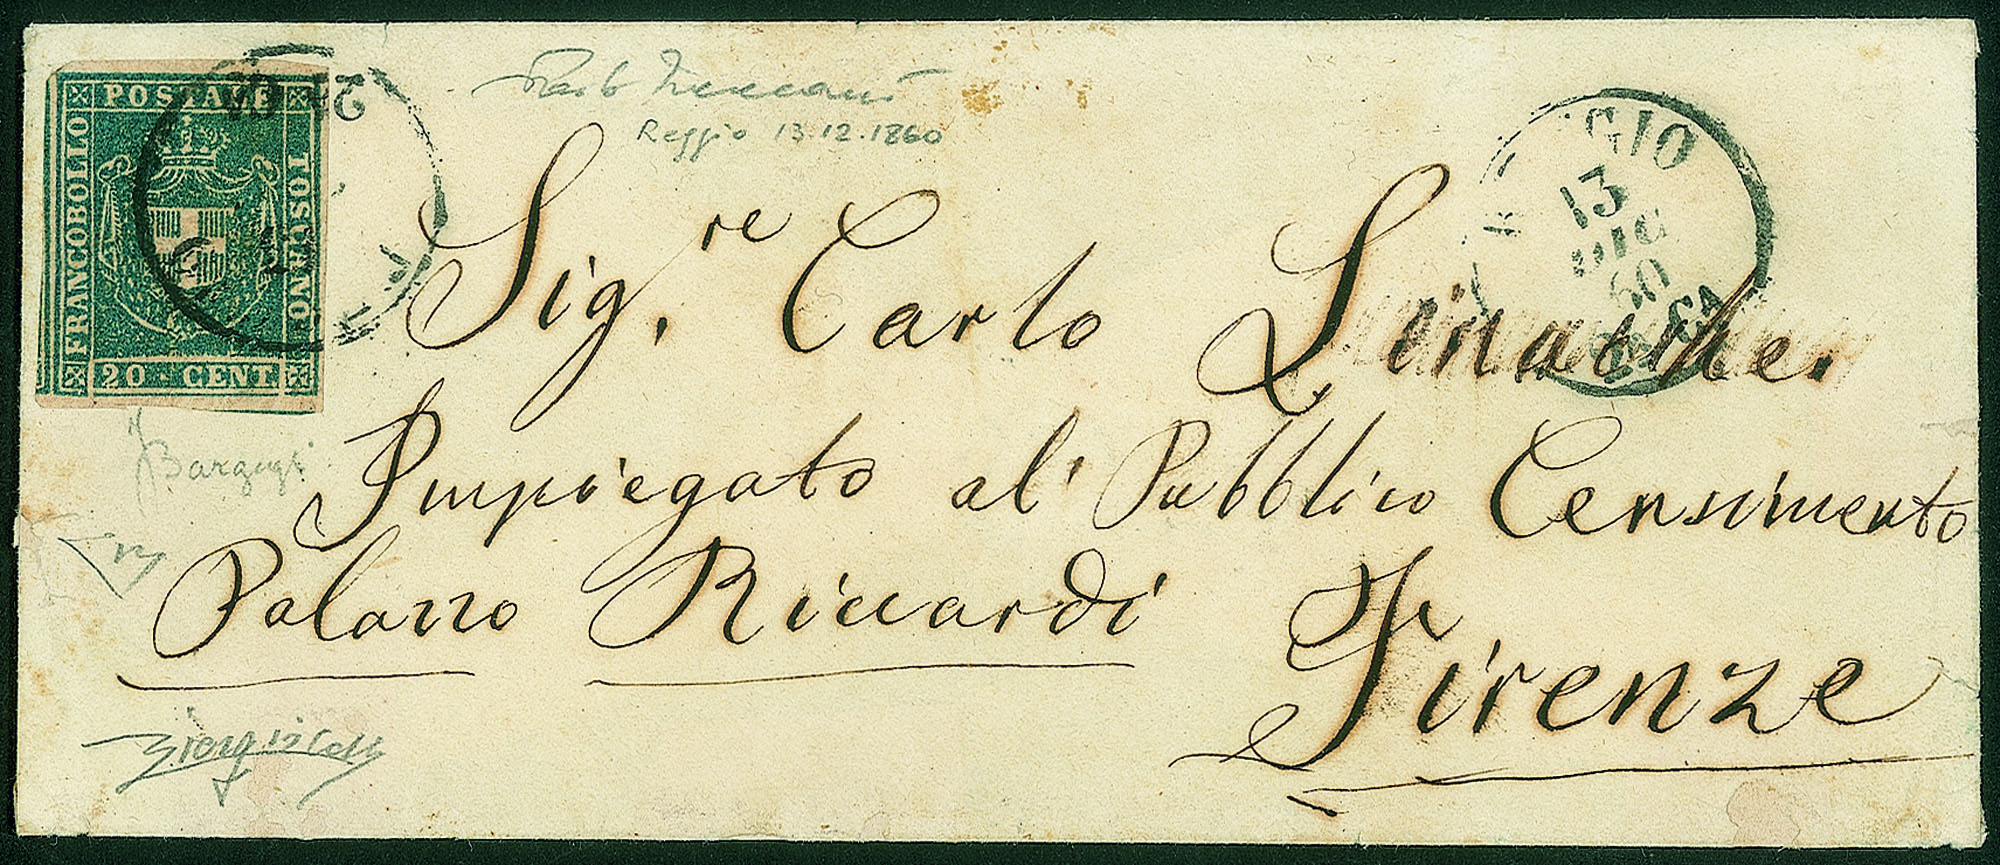 FRANCOBOLLO
POSTALE
TOSCANO
20 CENT.
Reggio 13.12.1860
GIO
13
DIC
60
Sig.re Carlo Linacche.
Impiegato al Pubblico Censimento
Palazzo Riccardi
Firenze